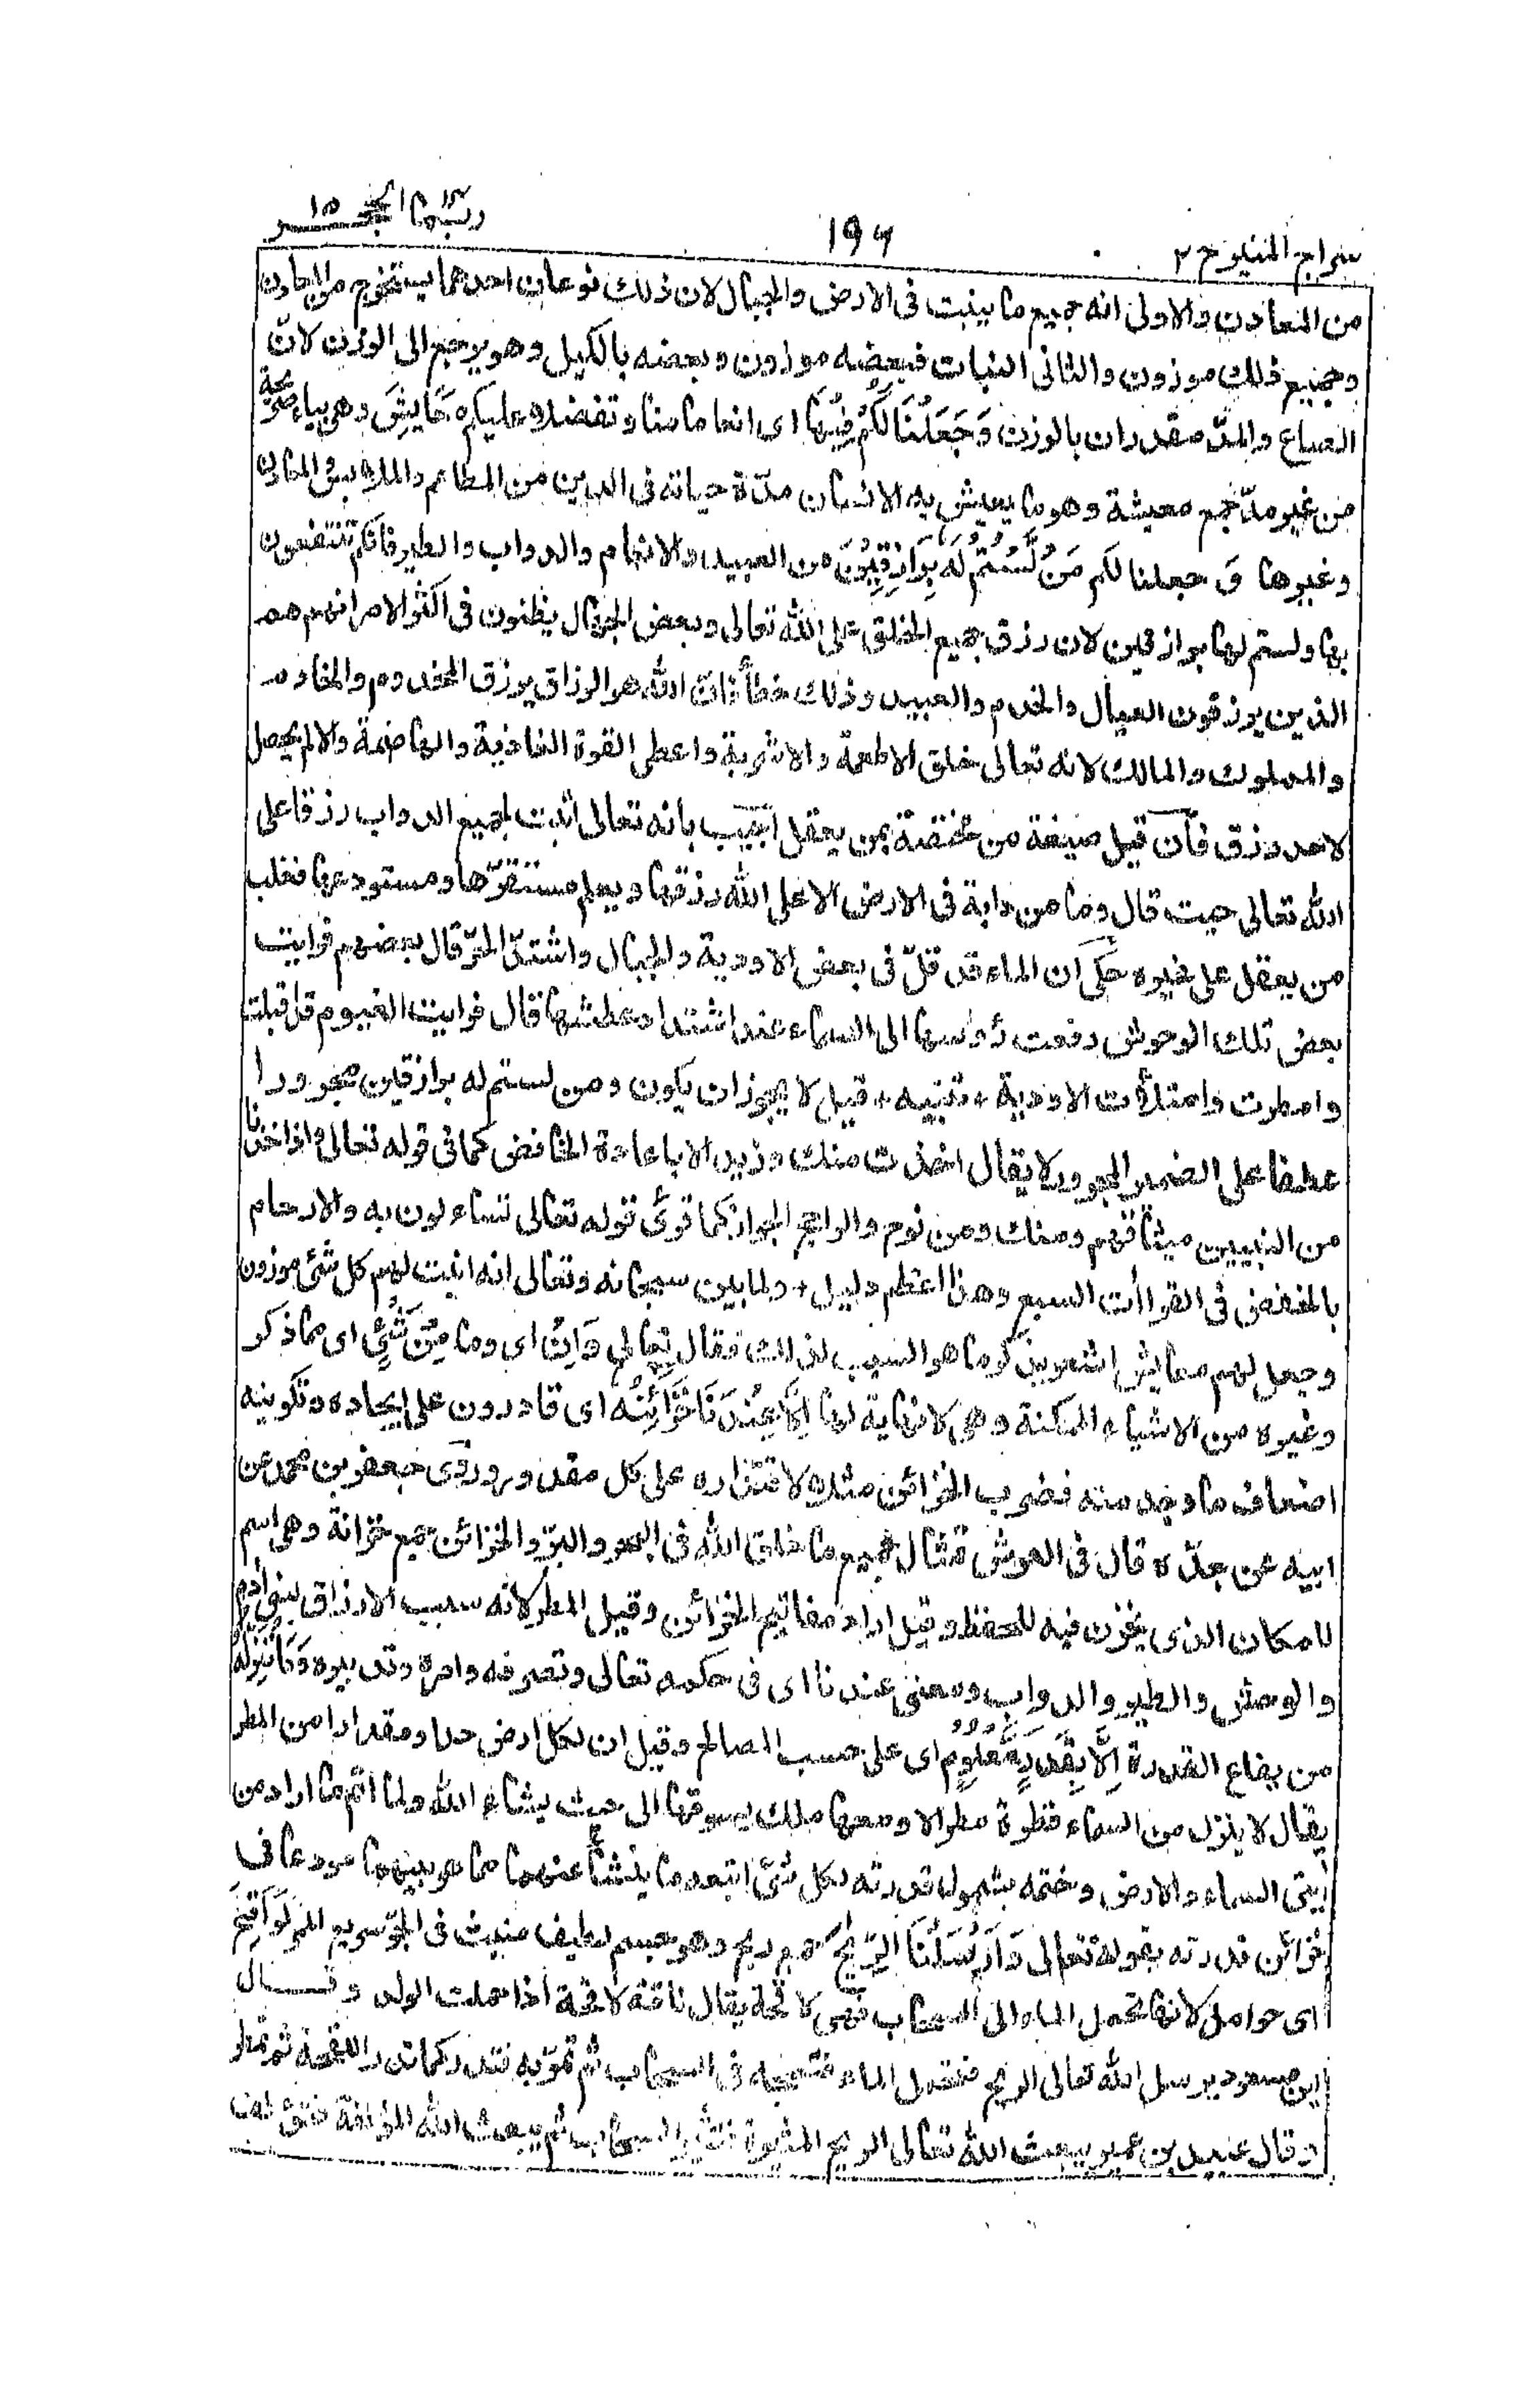 سراج المنير ج ٢
١٩٦
ربما ١٤ الحجر ١٥
من المعادن والاولى انه جميع ما ينبت فى الارض والجبال لان ذلك نوعان احدهما يستخرج من المعادن
وجميع ذلك موزون والثانى النبات فبعضه موزون وبعضه بالكيل وهو يرجع الى الوزن لانّ
الصاع والمدّ مقدران بالوزن وَجَعَلْنَا لَكُمْ فِيْهَا اى انعاما منا وتفضلا عليكم مَعَايِشَ وهى بياء صريحة
من غير مدّ جمع معيشة وهو ما يعيش به الانسان مدّة حياته فى الدين من المطاعم والملابس والمعادن
وغيرها وَ جعلنا لكم مَنْ لَّسْتُمْ لَهٗ بِرَازِقِيْنَ من العبيد والانعام والدواب والطير فانكم تنتفعون
بها ولستم لها برازقين لان رزق جميع الخلق على الله تعالى وبعض الجهال يظنون فى اكثر الامر انهم هم
الذين يرزقون العيال والخدم والعبيد وذلك خطأ فانّ الله هو الرزاق يرزق المخدوم والخادم
والمملوك والمالك لانه تعالى خلق الاطعمة والاشربة واعطى القوة الغاذية والهاضمة والالم يحصل
لاحد رزق فان قيل صيغة من مختصة بمن يعقل اجيب بانه تعالى اثبت لجميع الدواب رزقا على
الله تعالى حيث قال وما من دابة فى الارض الا على الله رزقها ويعلم مستقرّها ومستودعها فغلب
من يعقل على غيره حكى ان الماء قد قلّ فى بعض الاودية والجبال واشتدّ الحرّ قال بعضهم فرايت
بعض تلك الوحوش رفعت رؤسها الى السماء عند اشتداد عطشها قال فرايت الغيوم قد اقبلت
وامطرت وامتلأت الاودية + تنبيه + قيل لا يجوز ان يكون ومن لستم له برازقين مجرورا
عطفا على الضمير المجرور لا يقال اخذت منك وزيد الا باعادة الخافض كما فى قوله تعالى واذ اخذنا
من النبيين ميثاقهم ومنك ومن نوح والراجح الجواز كما قرئ قوله تعالى تساءلون به والارحام
بالخفض فى القراأت السبع وهذا اعظم دليل + ولما بين سبحانه وتعالى انه انبت لهم كل شئ موزون
وجعل لهم معايش اشعر بذكر ما هو السبب لذلك فقال تعالى وَاِنْ اى وما مِّنْ شَيْءٍ اى مما ذكر
وغيره من الاشياء الممكنة وهى لا نهاية لها اِلَّا عِنْدَنَا خَزَآئِنُهٗ اى قادرون على ايجاده وتكوينه
اضعاف ما وجد منه فضرب الخزائن مثلا لاقتداره على كل مقدور وروى جعفر بن محمد عن
ابيه عن جدّه قال فى العرش مثال جميع ما خلق الله فى البحر والبرّ والخزائن جمع خزانة وهى اسم
للمكان الذى يخزن فيه للحفظ وقيل اراد مفاتيح الخزائن وقيل المطر لانه سبب الارزاق لبنى آدم
والوحش والطير والدواب ومعنى عندنا اى فى حكمه تعالى وتصرفه وامره وتدبيره وَمَا نُنَزِّلُهٗ
من بقاع القدرة اِلَّا بِقَدَرٍ مَّعْلُوْمٍ اى على حسب المصالح وقيل ان لكل ارض حدا ومقدارا من المطر
يقال لا ينزل من السماء قطرة مطر الا ومعها ملك يسوقها الى حيث يشاء الله ولما اتم ما اراد من
ايتى السماء والارض وختمه بشمول قدرته لكل شئ اتبعه ما ينشأ عنهما مما هو بينهما مودعا فى
خزائن قدرته بقوله تعالى وَاَرْسَلْنَا الرِّيٰحَ جمع ريح وهو جسم لطيف منبث فى الجوّ سريع المرّ لَوَاقِحَ
اى حوامل لانها تحمل الماء الى السحاب فهى لاقحة يقال ناقة لاقحة اذا حملت الولد وقال
ابن مسعود يرسل الله تعالى الريح فتحمل الماء فتمجه فى السحاب ثم تمرّ به فتدر كما تدر اللقحة ثم تمطر
وقال عبيد بن عمير يبعث الله تعالى الريح المثيرة فتثير السحاب ثم يبعث الله المؤلفة فتؤلف